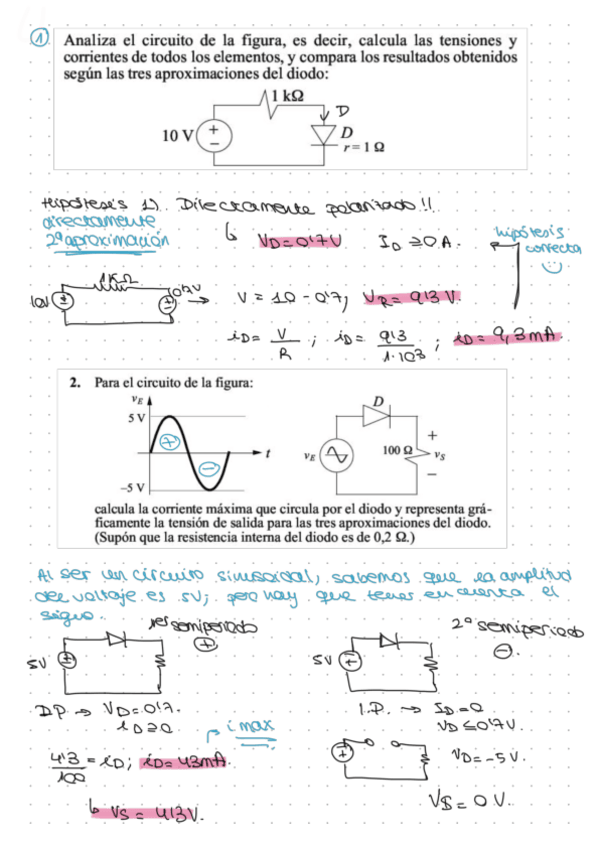 ① Analiza el circuito de la figura, es decir, calcula las tensiones y
corrientes de todos los elementos, y compara los resultados obtenidos
según las tres aproximaciones del diodo:
1 kΩ
D
10 V
D
r = 1 Ω
Hipótesis 1). Directamente polarizado!!
directamente
2ª aproximación
↳ VD=0'7V ID ≥0A.
hipótesis
correcta
1KΩ
10V
0'7V
V = 10 - 0'7; VR = 9'3 V.
iD = V/R ; iD = 9'3/1·10³ ; iD = 9,3mA.
2. Para el circuito de la figura:
vE
5 V
t
–5 V
+
−
D
vE
100 Ω
+
vS
−
calcula la corriente máxima que circula por el diodo y representa grá-
ficamente la tensión de salida para las tres aproximaciones del diodo.
(Supón que la resistencia interna del diodo es de 0,2 Ω.)
Al ser un circuito sinusoidal, sabemos que la amplitud
del voltaje es 5V; pero hay que tener en cuenta el
signo.
1er semiperiodo
+
2º semiperiodo
−.
5V
5V
DP → VD=0'7.
iD≥0.
I.P. → ID=0
VD≤0'7V.
i max
4'3/100 = iD; iD=43mA.
VD=-5V.
↳ VS = 4'3V.
VS = 0 V.